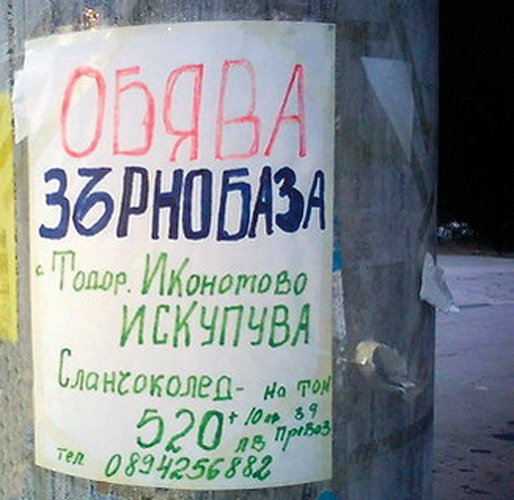 ОБЯВА
ЗЪРНОБАЗА
с. Тодор. Икономово
ИСКУПУВА
Сланчоколед - на тон
520 + 10 лв за
лв превоз
тел 0894256882